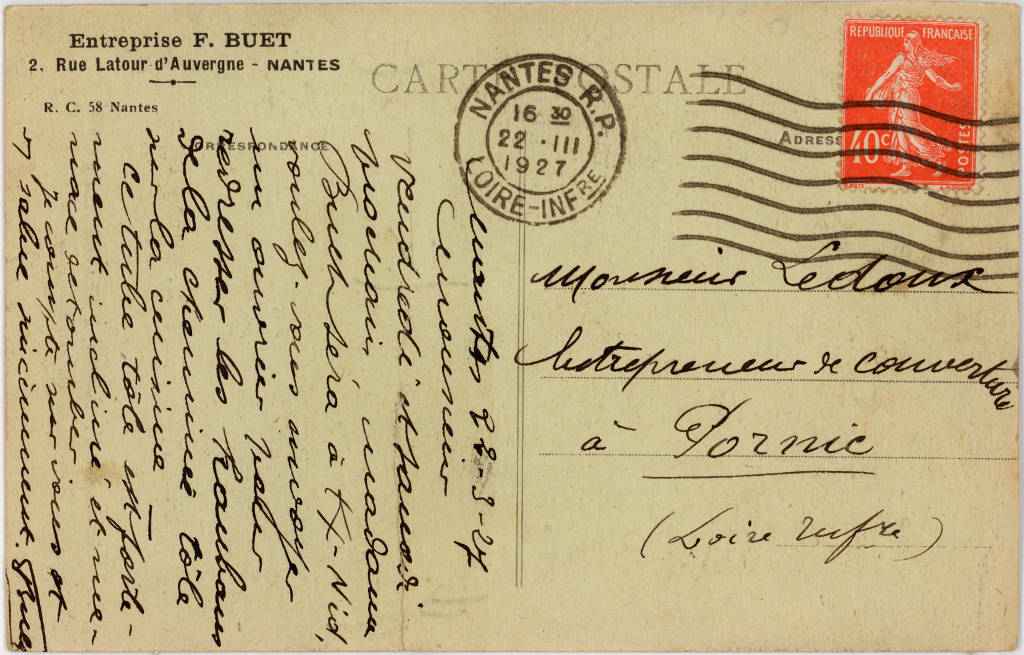 Entreprise F. BUET
2, Rue Latour-d'Auvergne - NANTES
R. C. 58 Nantes
CARTE POSTALE
CORRESPONDANCE
ADRESSE
NANTES R.P.
16 30
22 · III
1927
LOIRE-INFRE
REPUBLIQUE FRANÇAISE
40c
POSTES
Nantes 22-3-27
Monsieur
Vendredi et samedi
prochain, madame
Buet sera à
voulez-vous envoyer
un ouvrier pour
redresser les haubans
de la cheminée tôle
sur la cuisine
Ce tube tôle est forte-
ment incliné et me-
nace de tomber
Je compte sur vous et
vs salue sincèrement. Buet
Monsieur Ledoux
Entrepreneur de couverture
à Pornic
(Loire Infre)